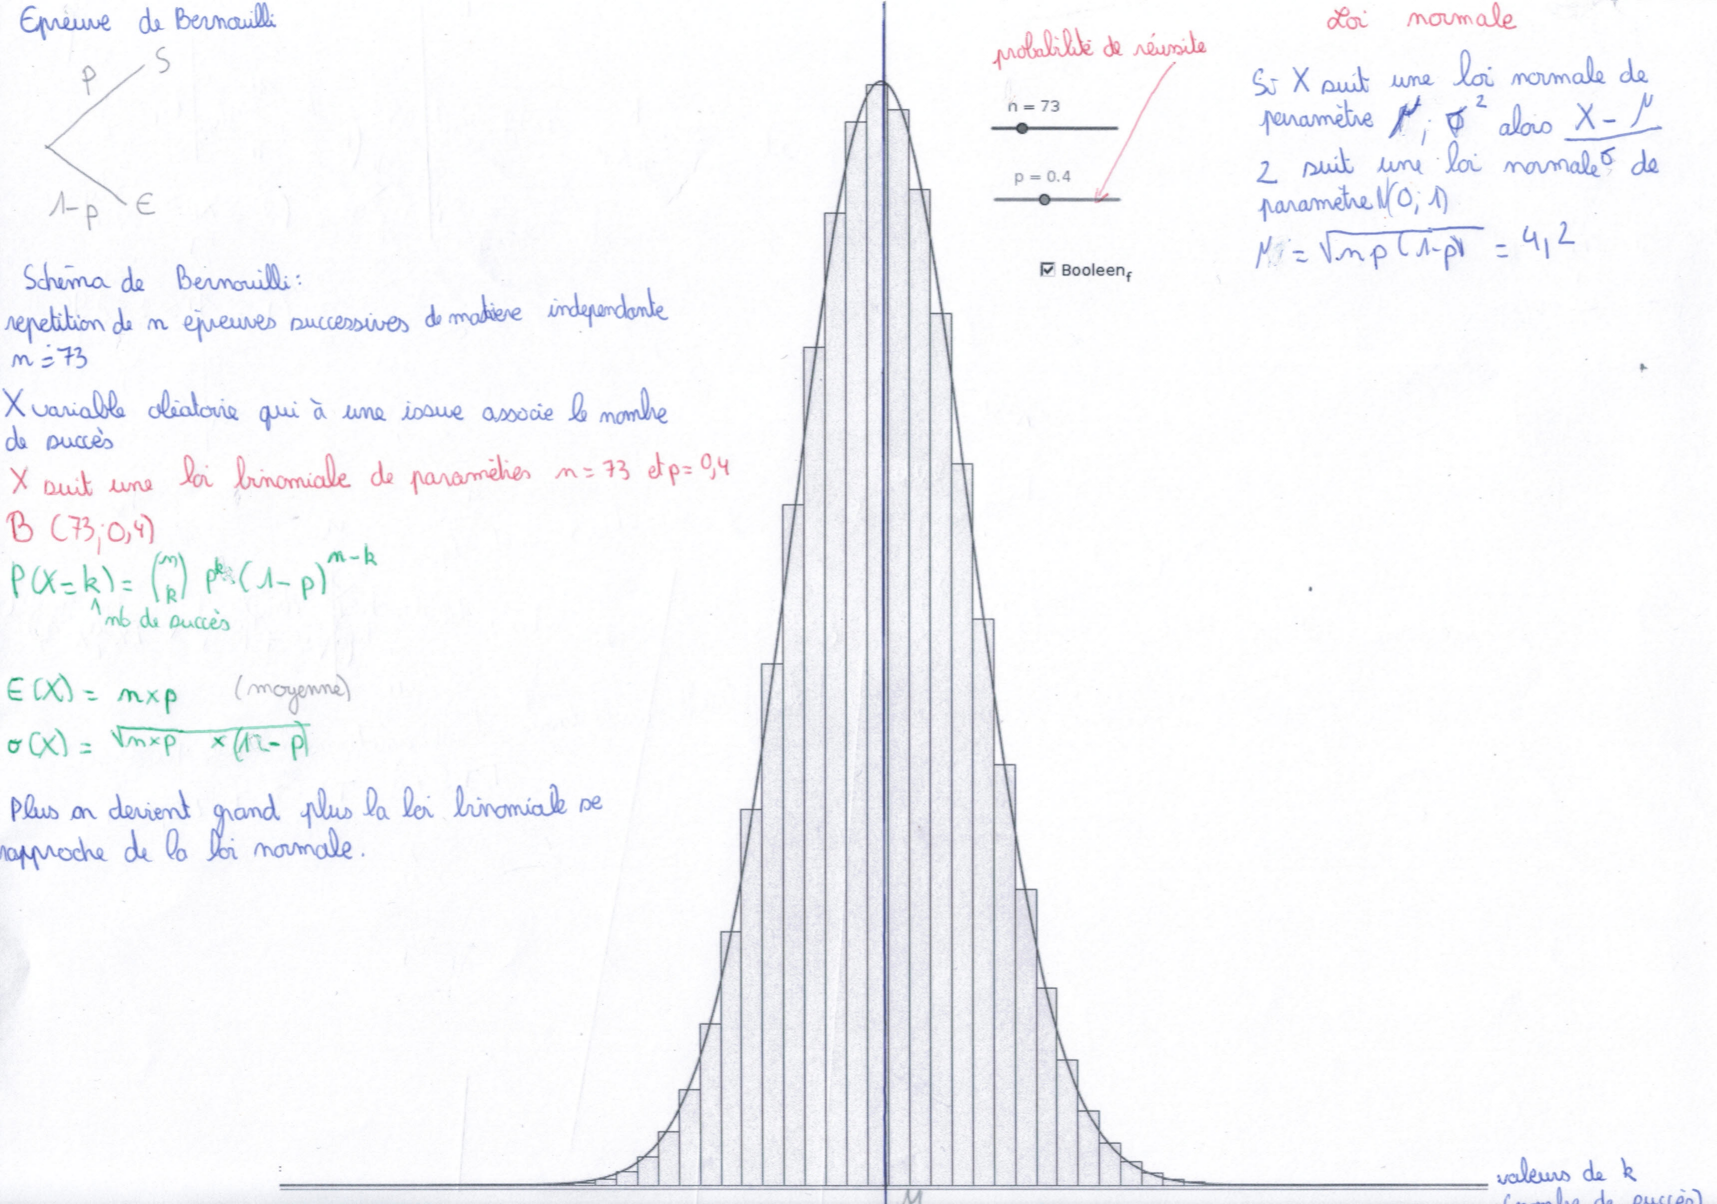 Epreuve de Bernouilli
p S
1-p E
Schéma de Bernouilli:
repetition de n epreuves successives de matiere independante
n = 73
X variable aléatoire qui à une issue associe le nombre
de succès
X suit une loi binomiale de paramètres n = 73 et p = 0,4
B (73; 0,4)
P(X = k) = (n k) p^k (1 - p)^(n-k)
nb de succès
E(X) = n×p (moyenne)
σ(X) = √n×p ×(1 - p)
Plus on devient grand plus la loi binomiale se
rapproche de la loi normale.
probabilité de réussite
n = 73
p = 0.4
Booleen_f
Loi normale
Si X suit une loi normale de
paramètre μ; σ² alors X - μ
σ
2 suit une loi normale de
parametre N(0; 1)
μ = √np(1-p) = 4,2
M
valeurs de k
(nombre de succès)